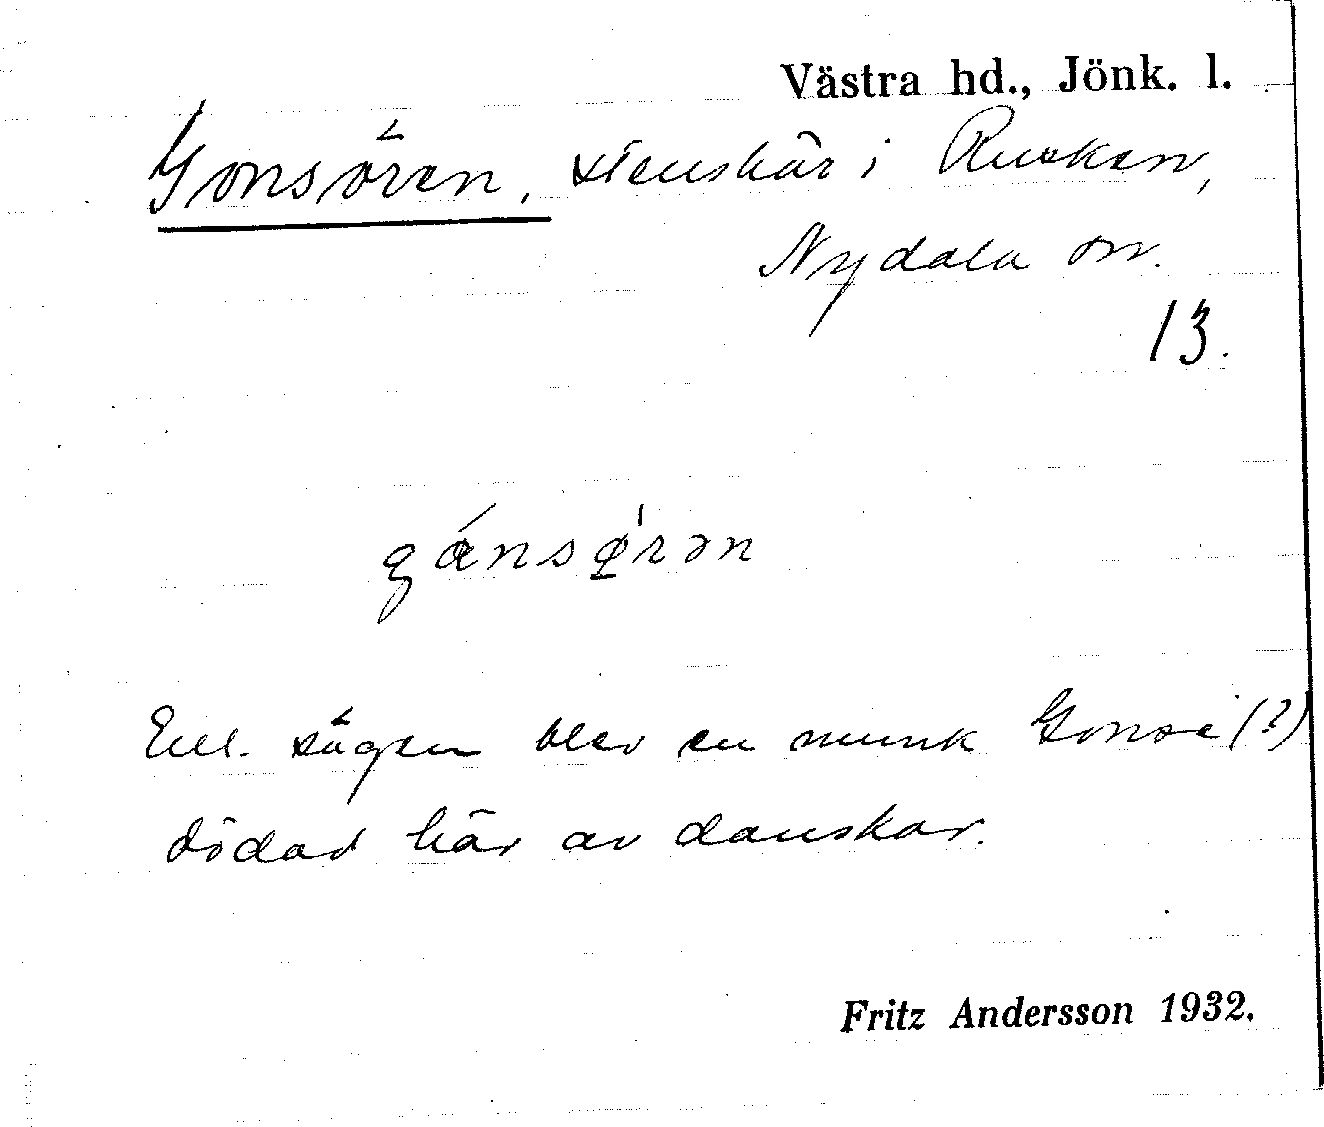 Västra hd., Jönk. l.
Gonsören, stenskär i Rusken,
Nydala sn.
13.
gánsǫ̈́rən
Enl. sägen blev en munk Gonse (?)
dödad här av danskar.
Fritz Andersson 1932.